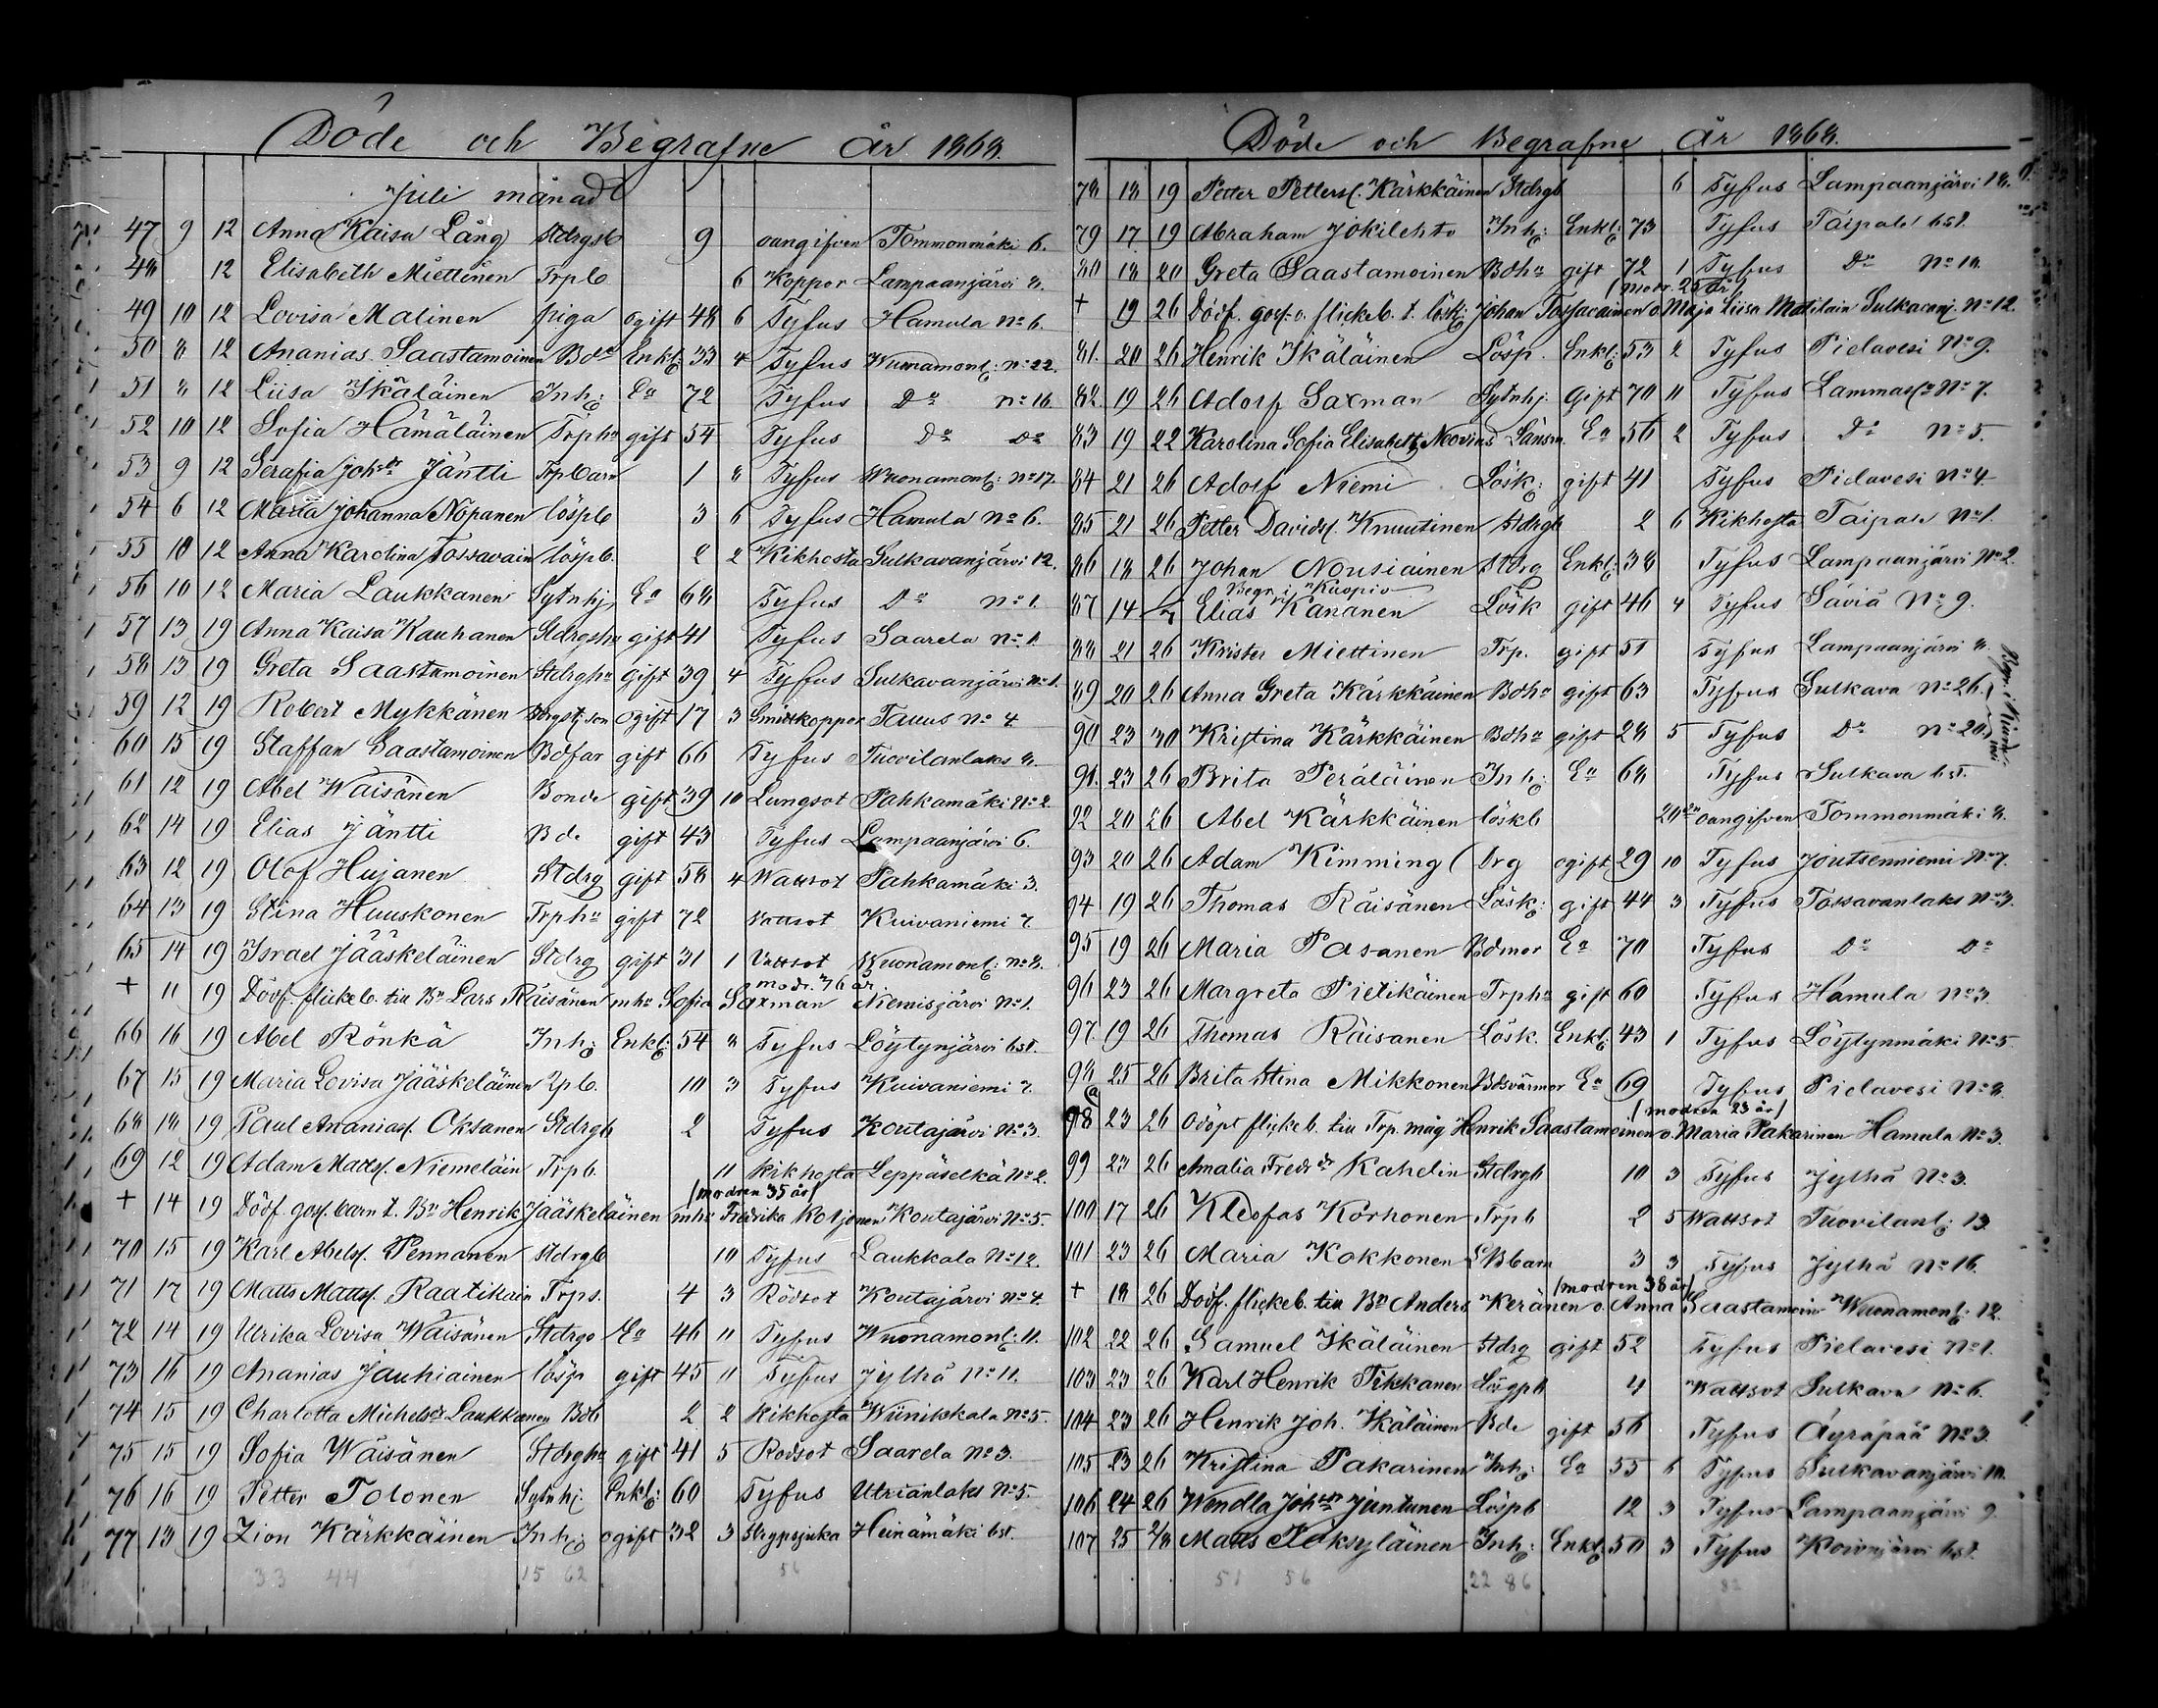 Döde och Begrafne år 1868.
Juli månad
47 9 12 Anna Kaisa Lång Stdrgsb 9 oangifven Tommonmäki 6.
48 12 Elisabeth Miettinen Trpb 6 Koppor Lampaanjärvi 8.
49 10 12 Lovisa Malinen piga ogift 48 6 Tyfus Hamula No 6.
50 8 12 Ananias Saastamoinen Bde Enkl: 33 4 Tyfus Wuonamonl: No 22.
51 8 12 Liisa Ikäläinen Inh: Do 72 Tyfus Do No 16
52 10 12 Sofia Hämäläinen Trphu gift 54 Tyfus Do Do
53 9 12 Serafia Johdr Jäntti Trpbarn 1 8 Tyfus Wuonamonl: No 17.
54 6 12 Maria Johanna Nopanen löspb 3 6 Tyfus Hamula No 6.
55 10 12 Anna Karolina Tossavain löspb. 2 2 Kikhosta Sulkavanjärvi 12.
56 10 12 Maria Laukkanen Sytnhj Ea 68 Tyfus Do No 1.
57 13 19 Anna Kaisa Kauhanen Stdrgshu gift 41 Tyfus Saarela No 1.
58 13 19 Greta Saastamoinen Stdrghu gift 39 4 Tyfus Sulkavanjärvi No 1.
59 12 19 Robert Mykkänen son ogift 17 3 Smittkoppor Taus No 4.
60 15 19 Staffan Saastamoinen Bdfar gift 66 Tyfus Tuovilanlaks 8.
61 12 19 Abel Wäisänen Bonde gift 39 10 Lungsot Pahkamäki No 2.
62 14 19 Elias Jäntti Bde gift 43 Tyfus Lampaanjärvi 6.
63 12 19 Olof Hujanen Stdrg gift 58 4 Wattsot Pahkamäki 3.
64 13 19 Stina Huuskonen Trphu gift 72 Vattsot Kuivaniemi 7.
65 14 19 Israel Jääskeläinen Stdrg gift 31 1 Vattsot Wuonamonl: No 8.
+ 11 19 Dödf. flickeb. till Bn Lars Räisänen o. mhu Sofia Saxman Niemisjärvi No 1.
66 16 19 Abel Rönkä Inh: Enkl: 54 8 Tyfus Löytynjärvi bst.
67 15 19 Maria Lovisa Jääskeläinen 10 3 Tyfus Kuivaniemi 7.
68 18 19 Paul Ananiass. Oksanen Stdrgb 2 Tyfus Koutajärvi No 3.
69 12 19 Adam Mattss. Niemeläin Trpb. 11 Kikhosta Leppäselkä No 2.
(modren 35 år)
+ 14 19 Dödf. goss. barn t. Bn Henrik Jääskeläinen o. mhu Fredrika Kotjonen Koutajärvi No 5.
70 15 19 Karl Abelss. Pennanen Stdrgb 10 Tyfus Laukkala No 12.
71 17 19 Matts Mattss. Raatikain Trps. 4 3 Rödsot Koutajärvi No 4.
72 14 19 Ulrika Lovisa Wäisänen Stdrgs Ea 46 11 Tyfus Wuonamonl: 11.
73 16 19 Ananias Jauhiainen lösp gift 45 11 Tyfus Jylhä No 11.
74 15 19 Charlotta Michelsdr Laukkanen Bdb 2 2 Kikhosta Wiinikkala No 5.
75 15 19 Sofia Wäisänen Stdrghu gift 41 5 Rödsot Saarela No 3.
76 16 19 Petter Tolonen Sytnhj Enkl: 60 Tyfus Utrianlaks No 5.
77 13 19 Zion Kärkkäinen Inh: ogift 32 3 Strypsjuka Heinämäki bst.
33 44 15 62 56
Döde och Begrafne år 1868.
78 18 19 Petter Petterss. Kärkkäinen Stdrgb 6 Tyfus Lampaanjärvi 18.
79 17 19 Abraham Jokilehto Inh: Enkl: 73 Tyfus Taipale bst.
80 18 20 Greta Saastamoinen Bdhu gift 72 1 Tyfus Do No 18.
(modr. 25 år)
+ 19 26 Dödf. goss- o. flickeb. t. lösk: Johan Tossavainen o. Maja Liisa Matilain Sulkavanj. No 12.
81. 20 26 Henrik Ikäläinen Lösp. Enkl: 53 2 Tyfus Pielavesi No 9.
82. 19 26 Adolf Saxman Sytnhj. Gift 70 11 Tyfus Lammass: No 7.
83 19 22 Karolina Sofia Elisabeth Neovius Länsm. Ea 56 2 Tyfus Do No 5.
84 21 26 Adolf Niemi Lösk: gift 41 Tyfus Pielavesi No 4
85 21 26 Petter Davidss. Knuutinen Stdrgb 2 6 Kikhosta Taipale No 1.
86 18 26 Johan Nousiainen Stdrg Enkl: 38 Tyfus Lampaanjärvi No 2.
Begr. i Kuopio
87 14 Elias Kananen Lösk gift 46 4 Tyfus Säviä No 9.
88 21 26 Krister Miettinen Trp. gift 51 Tyfus Lampaanjärvi 8.
89 20 26 Anna Greta Kärkkäinen Bdhu gift 63 Tyfus Sulkava No 26.
90 23 30 Kristina Kärkkäinen Bdhu gift 28 5 Tyfus Do No 20.
91. 23 26 Brita Peräläinen Inh: Ea 68 Tyfus Sulkava bst.
92 20 26 Abel Kärkkäinen löskb oangifven Tommonmäki 8.
93 20 26 Adam Kimming Drg ogift 29 10 Tyfus Joutsenniemi No 7.
94 19 26 Thomas Räisänen Lösk: gift 44 3 Tyfus Tossavanlaks No 3.
95 19 26 Maria Pasanen Bdmor Ea 70 Tyfus Do Do
96 23 26 Margreta Pietikäinen Trphu gift 60 Tyfus Hamula No 3.
97. 19 26 Thomas Räisänen Lösk. Enkl: 43 1 Tyfus Löytynmäki No 5.
98 25 26 Brita Stina Mikkonen Bdsvärmor Ea 69 Tyfus Pielavesi No 8.
(modren 23 år)
98 a 23 26 Odöpt flickeb. till Trp. måg Henrik Saastamoinen o. Maria Pakarinen Hamula No 3.
99 23 26 Amalia Fredr dr Kahelin Stdrgb 10 3 Tyfus Jylhä No 3.
100 17 26 Kleofas Korhonen Trpb 2 5 Wattsot Tuovilanl: 13.
101 23 26 Maria Kokkonen 3 3 Tyfus Jylhä No 16.
(modren 38 år)
+ 18 26 Dödf. flickeb. till Bn Anders Keränen o. Anna Saastamoin Wuonamonl: 12.
102 22 26 Samuel Ikäläinen Stdrg gift 52 Tyfus Pielavesi No 1.
103 23 26 Karl Henrik Tikkanen 4 Wattsot Sulkava No 6.
104 23 26 Henrik Joh. Ikäläinen Bde gift 56 Tyfus Äyräpää No 3.
105 23 26 Kristina Pakarinen Inh: Ea 55 6 Tyfus Sulkavanjärvi 10.
106 24 26 Wendla Johdr Juntunen Löspb 12 3 Tyfus Lampaanjärvi 9.
107 25 2/8 Matts Pöksyläinen Inh: Enkl: 50 3 Tyfus Koivujärvi bst.
51 56 22 86 82